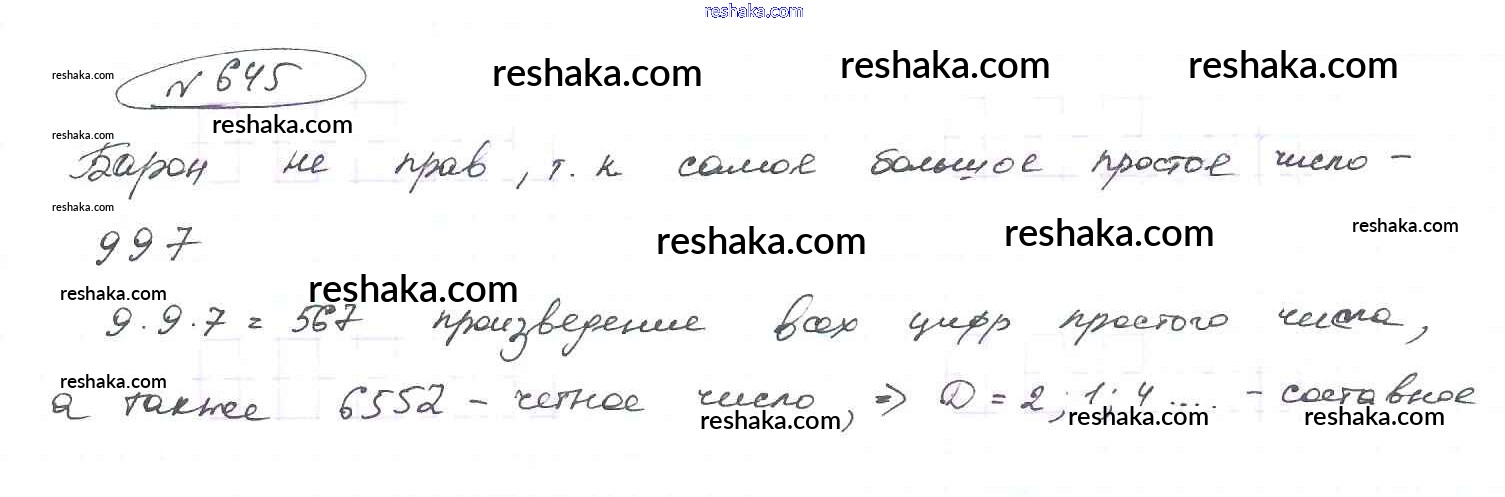 reshaka.com
№ 645
reshaka.com reshaka.com reshaka.com reshaka.com
reshaka.com
reshaka.com
Барон не прав, т. к самое большое простое число -
reshaka.com
997
reshaka.com reshaka.com reshaka.com
reshaka.com reshaka.com
9·9·7 = 567 произведение всех цифр простого числа,
reshaka.com
а также 6552 - четное число, => D = 2; 1; 4 .... - составное
reshaka.com reshaka.com reshaka.com